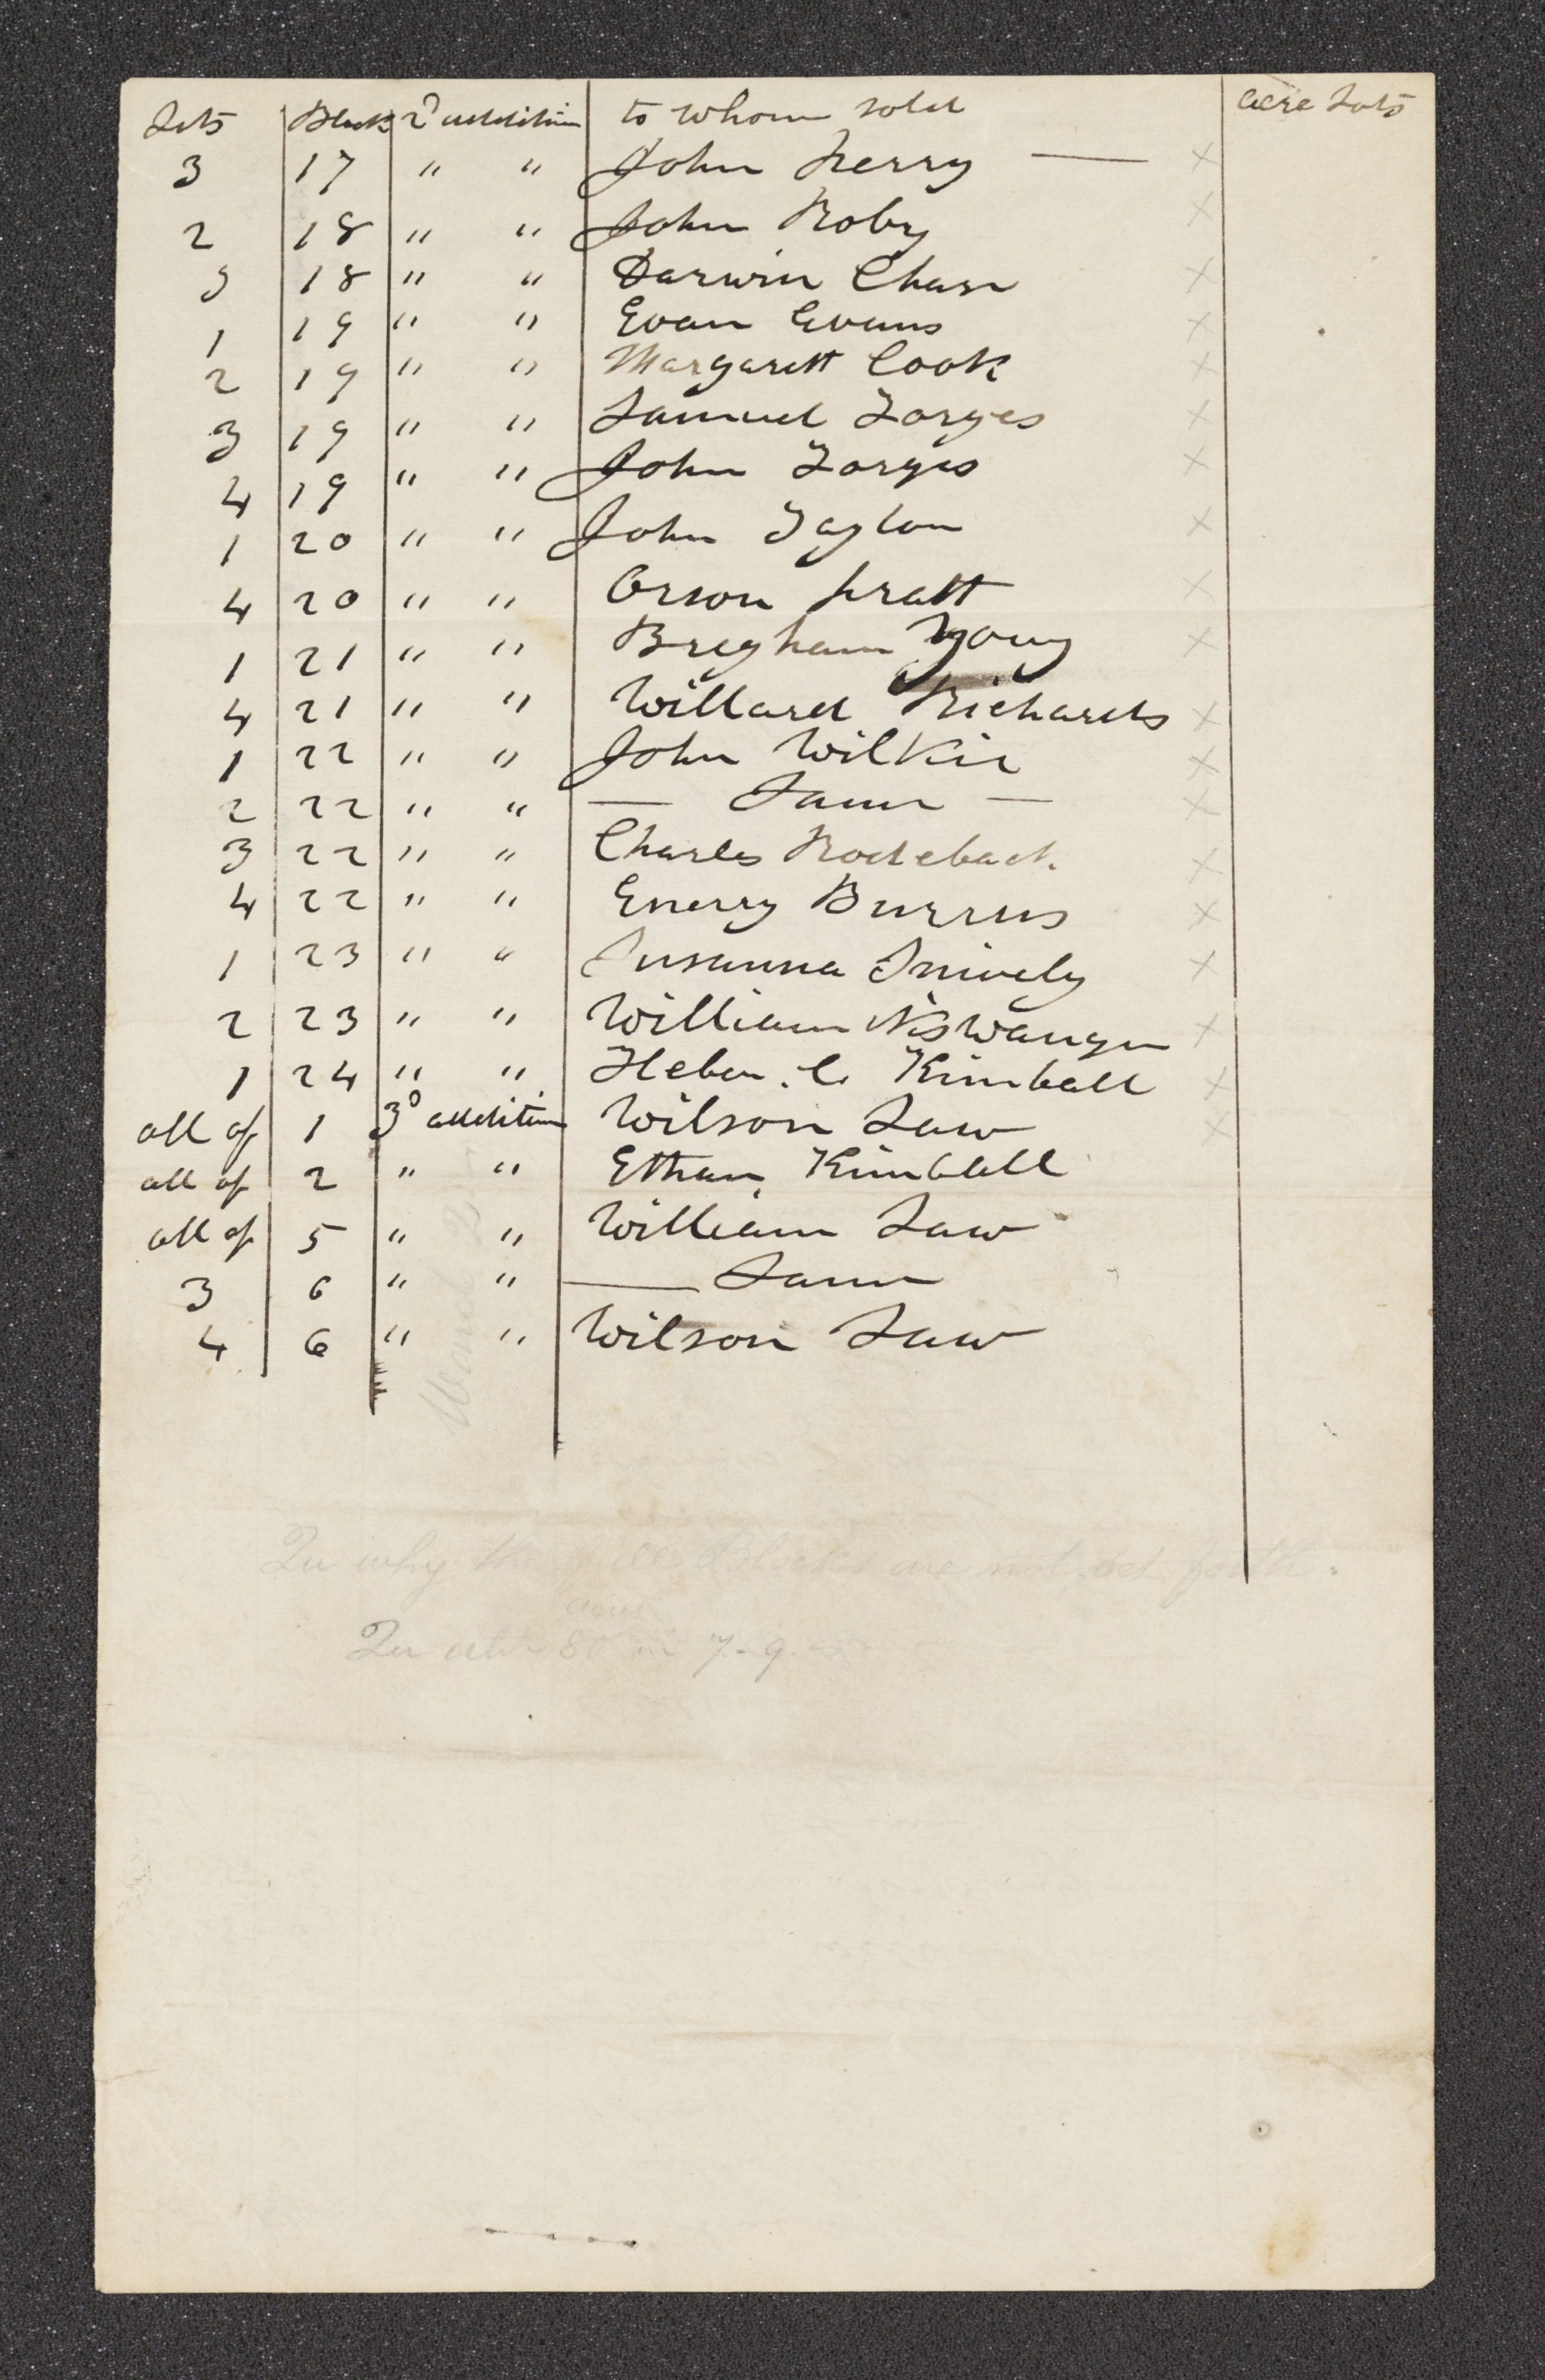 Lots Blocks 2d addition to whom sold acre Lots
3 17 " " John Perry — x
2 18 " " John Roby x
3 18 " " Darwin Chase x
1 19 " " Evan Evans x
2 19 " " Margarett Cook x
3 19 " " Samuel x
4 19 " " John x
1 20 " " John Taylor x
4 20 " " Orson pratt x
1 21 " " Bregham young x
4 21 " " Willard Richards x
1 22 " " John Wilkie x
2 22 " " — Same — x
3 22 " " Charles x
4 22 " " Emerry Burrus x
1 23 " " Susanna Snively x
2 23 " " William Niswanger x
1 24 " " Heber. C. Kimball x
all of 1 3d addition Wilson Law x
all of 2 " " Ethan Kimball
all of 5 " " William Law
3 6 " " — Same
4 6 " " Wilson Law
Qu why the full Blocks are not set forth.
acres
Qu 80 in 7-9